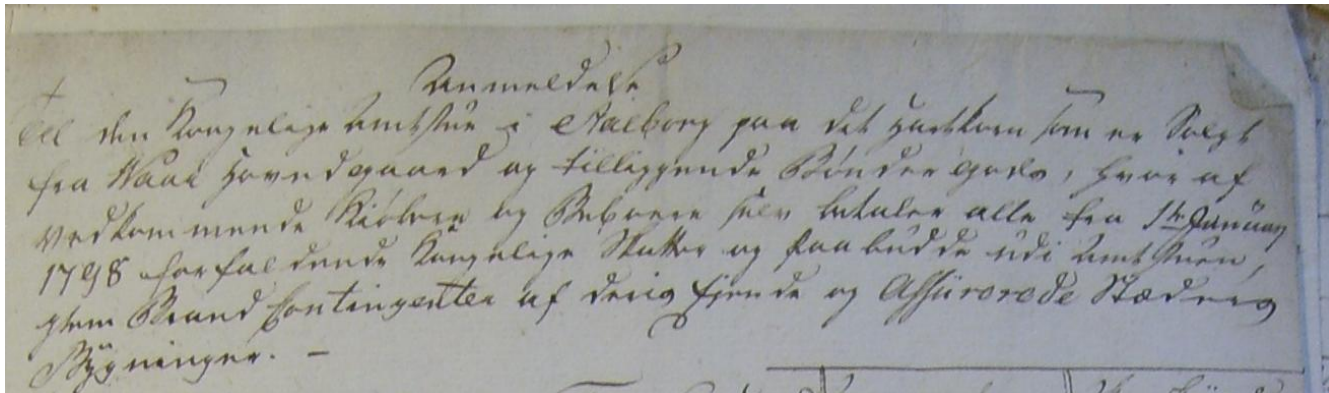 Anmeldelse
Til den Kongelige Amtstue i Aalborg paa det Hartkorn som er Solgt
fra Waar Hovedgaard og tilliggende Bøndergods, hvoraf
vedkommende Kiøbere og Beboere selv betaler alle fra 1te Januarj
1798 forfaldende Kongelige Skatter og paabudde udi Amtstuen,
item Brand Contingenter af deris Ejende og Assurerede Stæders
Bygninger. -